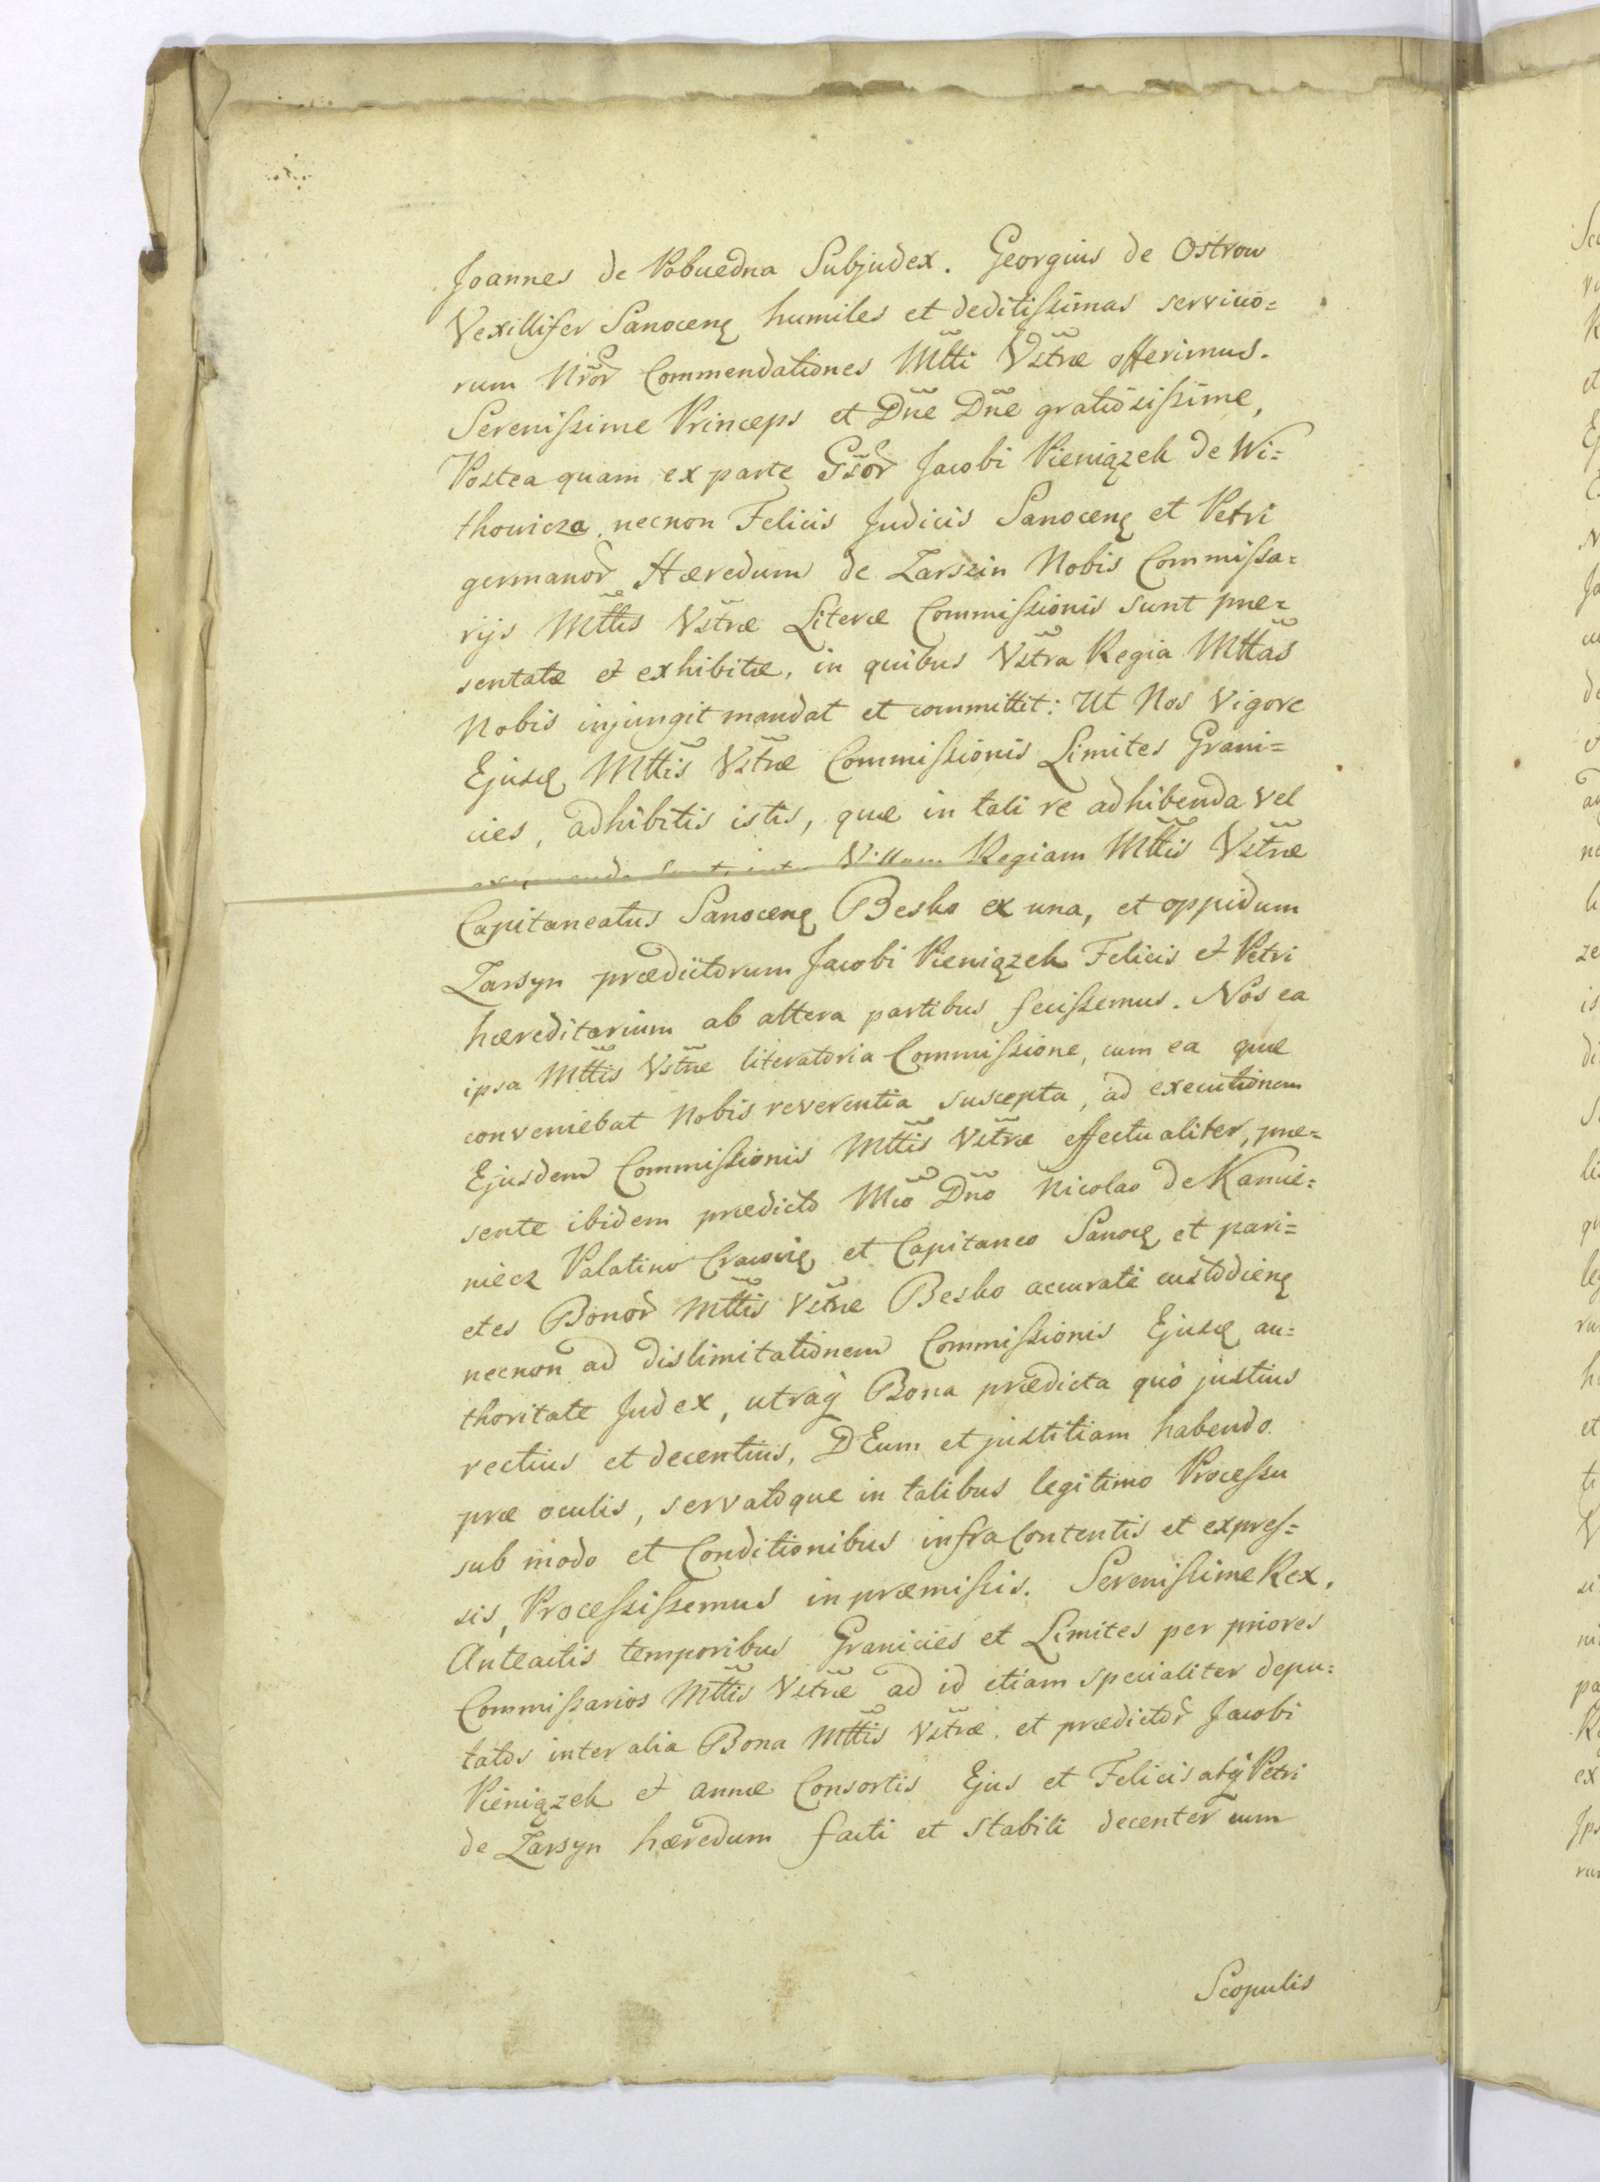 Joannes de Pobuedna Subjudex. Georgius de Ostrow
Vexillifer Sanocenꝫ humiles et deditissimas servicio=
rum Nror̃ Commendationes Mtti Vstræ offerimus.
Serenissime Princeps et Dne Dne gratiosissime,
Postea quam ex parte Gsor̃ Jacobi Pieniązek de Wi=
thowicza necnon Felicis Judicis Sanocenꝫ et Petri
germanor̃ Hæredum de Zarszin Nobis Commissa=
rijs Mttis Vstræ Literæ Commissionis sunt præ=
sentatæ et exhibitæ, in quibus Vstra Regia Mttas
Nobis injungit mandat et committit: Ut Nos Vigore
Ejusꝫ Mttis Vstræ Commissionis Limites Grani=
cies, adhibitis istis, quæ in tali re adhibenda vel
Villam Regiam Mttis Vstræ
Capitaneatus Sanocenꝫ Besko ex una, et oppidum
Zarsyn prædictorum Jacobi Pieniązek Felicis et Petri
hæreditarium ab altera partibus fecissemus. Nos ea
ipsa Mttis Vstræ literatoria Commissione, cum ea quæ
conveniebat Nobis reverentia suscepta, ad executionem
Ejusdem Commissionis Mttis Vstræ effectualiter, præ=
sente ibidem prædicto Mco Dno Nicolao de Kamie=
niecz Palatino Cracovieꝫ et Capitaneo Sanocꝫ et pari=
etes Bonor̃ Mttis Vstræ Besko accurate custodienꝫ
necnon ad dislimitationem Commissionis Ejusꝫ au=
thoritate Judex, utraq̃ Bona prædicta quo justius
rectius et decentius, DEum et justitiam habendo
præ oculis, servatoque in talibus legitimo Processu
sub modo et Conditionibus infra Contentis et expres=
sis, Processissemus in præmissis. Serenissime Rex.
Anteactis temporibus Granicies et Limites per priores
Commissarios Mttis Vstræ ad id etiam specialiter depu=
tatos inter alia Bona Mttis Vstræ. et prædictor̃ Jacobi
Pieniązek et Annæ Consortis Ejus et Felicis atq̃ Petri
de Zarsyn hæredum facti et stabili decenter cum
Scopulis